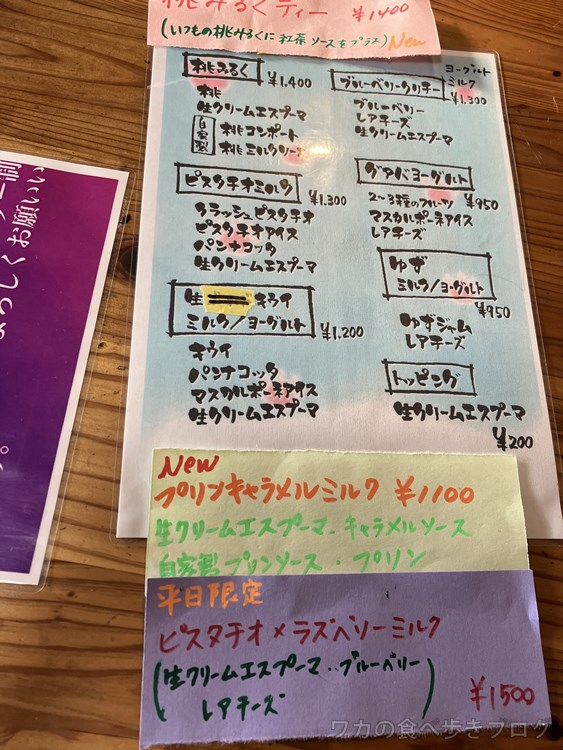 桃みるくティー ¥1400
(いつもの桃みるくに紅茶ソースをプラス) New
桃みるく ¥1,400
桃
生クリームエスプーマ
自家製
桃コンポート
桃ミルクソース
ピスタチオミルク ¥1,300
クラッシュピスタチオ
ピスタチオアイス
パンナコッタ
生クリームエスプーマ
生 キウイ
ミルク/ヨーグルト ¥1,200
キウイ
パンナコッタ
マスカルポーネアイス
生クリームエスプーマ
ヨーグルト
ブルーベリークリチー ミルク
¥1,300
ブルーベリー
レアチーズ
生クリームエスプーマ
グアバヨーグルト
¥950
2~3種のフルーツ
マスカルポーネアイス
レアチーズ
ゆず
ミルク/ヨーグルト
¥950
ゆずジャム
レアチーズ
トッピング
生クリームエスプーマ
¥200
New
プリンキャラメルミルク ¥1100
生クリームエスプーマ・キャラメルソース
自家製プリンソース・プリン
平日限定
ピスタチオ×ラズベリーミルク
(生クリームエスプーマ・ブルーベリー
レアチーズ)
¥1500
ワカの食べ歩きブログ